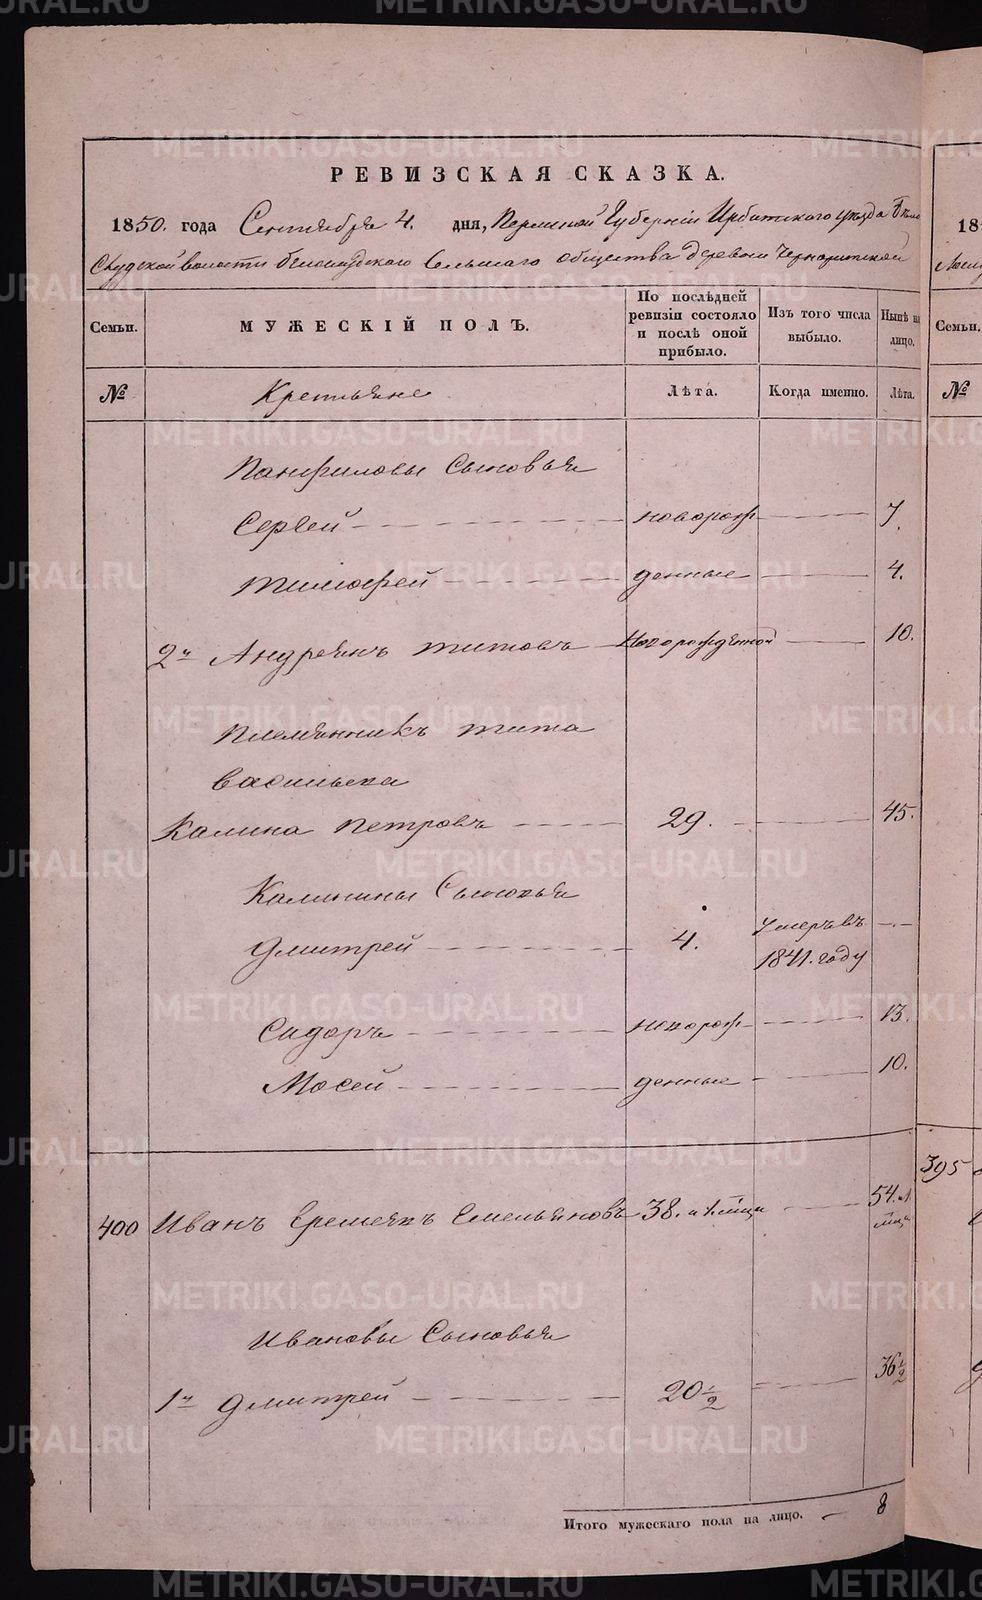 РЕВИЗСКАЯ СКАЗКА.
1850. года Сентября 4. дня, Пермской Губерніи Ирбитского уезда Бѣло
слудской волости Белослудского Сельскаго общества деревни
Семьи.
МУЖЕСКІЙ ПОЛЪ.
По послѣдней ревизіи состояло и послѣ оной прибыло.
Изъ того числа выбыло.
Нынѣ на лицо.
№
Крестьяне
Лѣта.
Когда именно.
Лѣта.
Панфиловы Сыновья
Сергей новорож 7.
Тимофей денные 4.
2й Андреянъ Титовъ Новорожденной 10.
Племянникъ Тита
Васильева
Калина Петровъ 29. 45.
Калинины Сыновья
Дмитрей 4. Умеръ въ 1841. году
Сидоръ новорож 13.
Мосей денные 10.
400 Иванъ Еремеевъ Емельяновъ 38. 54.
Ивановы Сыновья
1й Дмитрей 20 1/2 36 1/2
Итого мужескаго пола на лицо. 8
18
Семьи.
№
395
METRIKI.GASO-URAL.RU